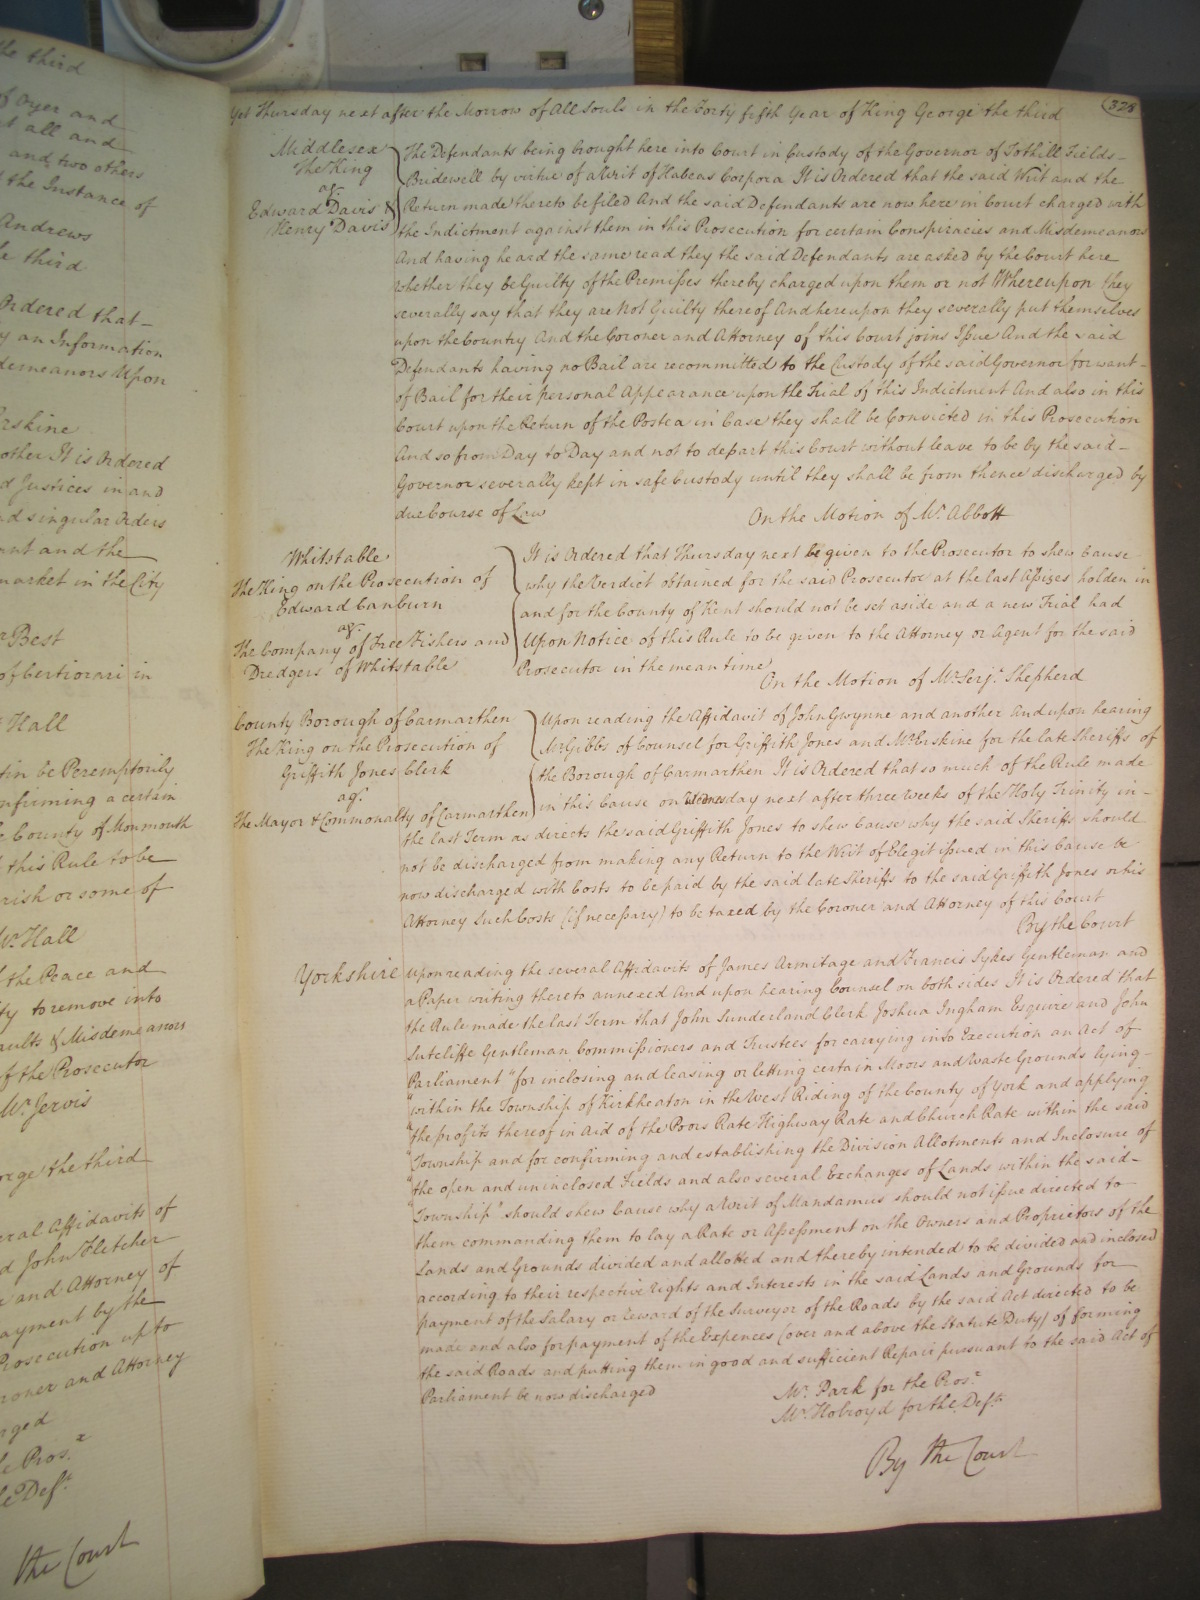 the third
of Oyer and
at all and
and two others
the Instance of
Andrews
third
Ordered that
an Information
demeanors Upon
Erskine
other It is Ordered
Justices in and
and singular Orders
and the
market in the City
Best
of Certiorari in
Hall
be Peremptorily
confirming a certain
County of Monmouth
this Rule to be
or some of
Mr. Hall
the Peace and
to remove into
& Misdemeanors
of the Prosecutor
Mr. Jervis
the third
Affidavits of
John Fletcher
and Attorney of
payment by the
Prosecution up to
Coroner and Attorney
Pros.r
Def.t
the Court
328
Yet Thursday next after the Morrow of All Souls in the Forty fifth Year of King George the third
Middlesex
The King
ag.
Edward Davis &
Henry Davis
The Defendants being brought here into Court in Custody of the Governor of Tothill Fields
Bridewell by virtue of a Writ of Habeas Corpora It is Ordered that the said Writ and the
Return made thereto be filed And the said Defendants are now here in Court charged with
the Indictment against them in this Prosecution for certain Conspiracies and Misdemeanors
And having heard the same read they the said Defendants are asked by the Court here
whether they be Guilty of the Premisses thereby charged upon them or not Whereupon they
severally say that they are Not Guilty thereof And hereupon they severally put themselves
upon the Country And the Coroner and Attorney of this Court joins Issue And the said
Defendants having no Bail are recommitted to the Custody of the said Governor for want
of Bail for their personal Appearance upon the Trial of this Indictment And also in this
Court upon the Return of the Postea in Case they shall be Convicted in this Prosecution
And so from Day to Day and not to depart this Court without leave to be by the said
Governor severally kept in safe Custody until they shall be from thence discharged by
due Course of Law
On the Motion of Mr. Abbott
Whitstable
The King on the Prosecution of
Edward Canburn
ag.
The Company of Free Fishers and
Dredgers of Whitstable
It is Ordered that Thursday next be given to the Prosecutor to shew Cause
why the Verdict obtained for the said Prosecutor at the last Assizes holden in
and for the County of Kent should not be set aside and a new Trial had
Upon Notice of this Rule to be given to the Attorney or Agent for the said
Prosecutor in the mean time
On the Motion of Mr. Serj.t Shepherd
County Borough of Carmarthen
The King on the Prosecution of
Griffith Jones Clerk
ag.
The Mayor & Commonalty of Carmarthen
Upon reading the Affidavit of John Gwynne and another And upon hearing
Mr. Gibbs of Counsel for Griffith Jones and Mr. Erskine for the late Sheriffs of
the Borough of Carmarthen It is Ordered that so much of the Rule made
in this Cause on Wednesday next after three Weeks of the Holy Trinity in
the last Term as directs the said Griffith Jones to shew Cause why the said Sheriffs should
not be discharged from making any Return to the Writ of Elegit issued in this Cause be
now discharged with Costs to be paid by the said late Sheriffs to the said Griffith Jones or his
Attorney Such Costs (if necessary) to be taxed by the Coroner and Attorney of this Court
By the Court
Yorkshire
Upon reading the several Affidavits of James Armitage and Francis Sykes Gentleman and
a Paper writing thereto annexed And upon hearing Counsel on both sides It is Ordered that
the Rule made the last Term that John Sunderland Clerk Joshua Ingham Esquire and John
Sutcliffe Gentleman, Commissioners and Trustees for carrying into Execution an Act of
Parliament "for inclosing and leasing or letting certain Moors and Waste Grounds lying
"within the Township of Kirkheaton in the West Riding of the County of York and applying
"the profits thereof in Aid of the Poors Rate Highway Rate and Church Rate within the said
"Township and for confirming and establishing the Division Allotments and Inclosure of
"the open and uninclosed Fields and also several Exchanges of Lands within the said
"Township" should shew Cause why a Writ of Mandamus should not issue directed to
them commanding them to lay a Rate or Assessment on the Owners and Proprietors of the
Lands and Grounds divided and allotted and thereby intended to be divided and inclosed
according to their respective Rights and Interests in the said Lands and Grounds for
payment of the Salary or Reward of the Surveyor of the Roads by the said Act directed to be
made and also for payment of the Expences (over and above the Statute Duty) of forming
the said Roads and putting them in good and sufficient Repair pursuant to the said Act of
Parliament be now discharged
Mr. Park for the Pros.r
Mr. Holroyd for the Def.ts
By the Court